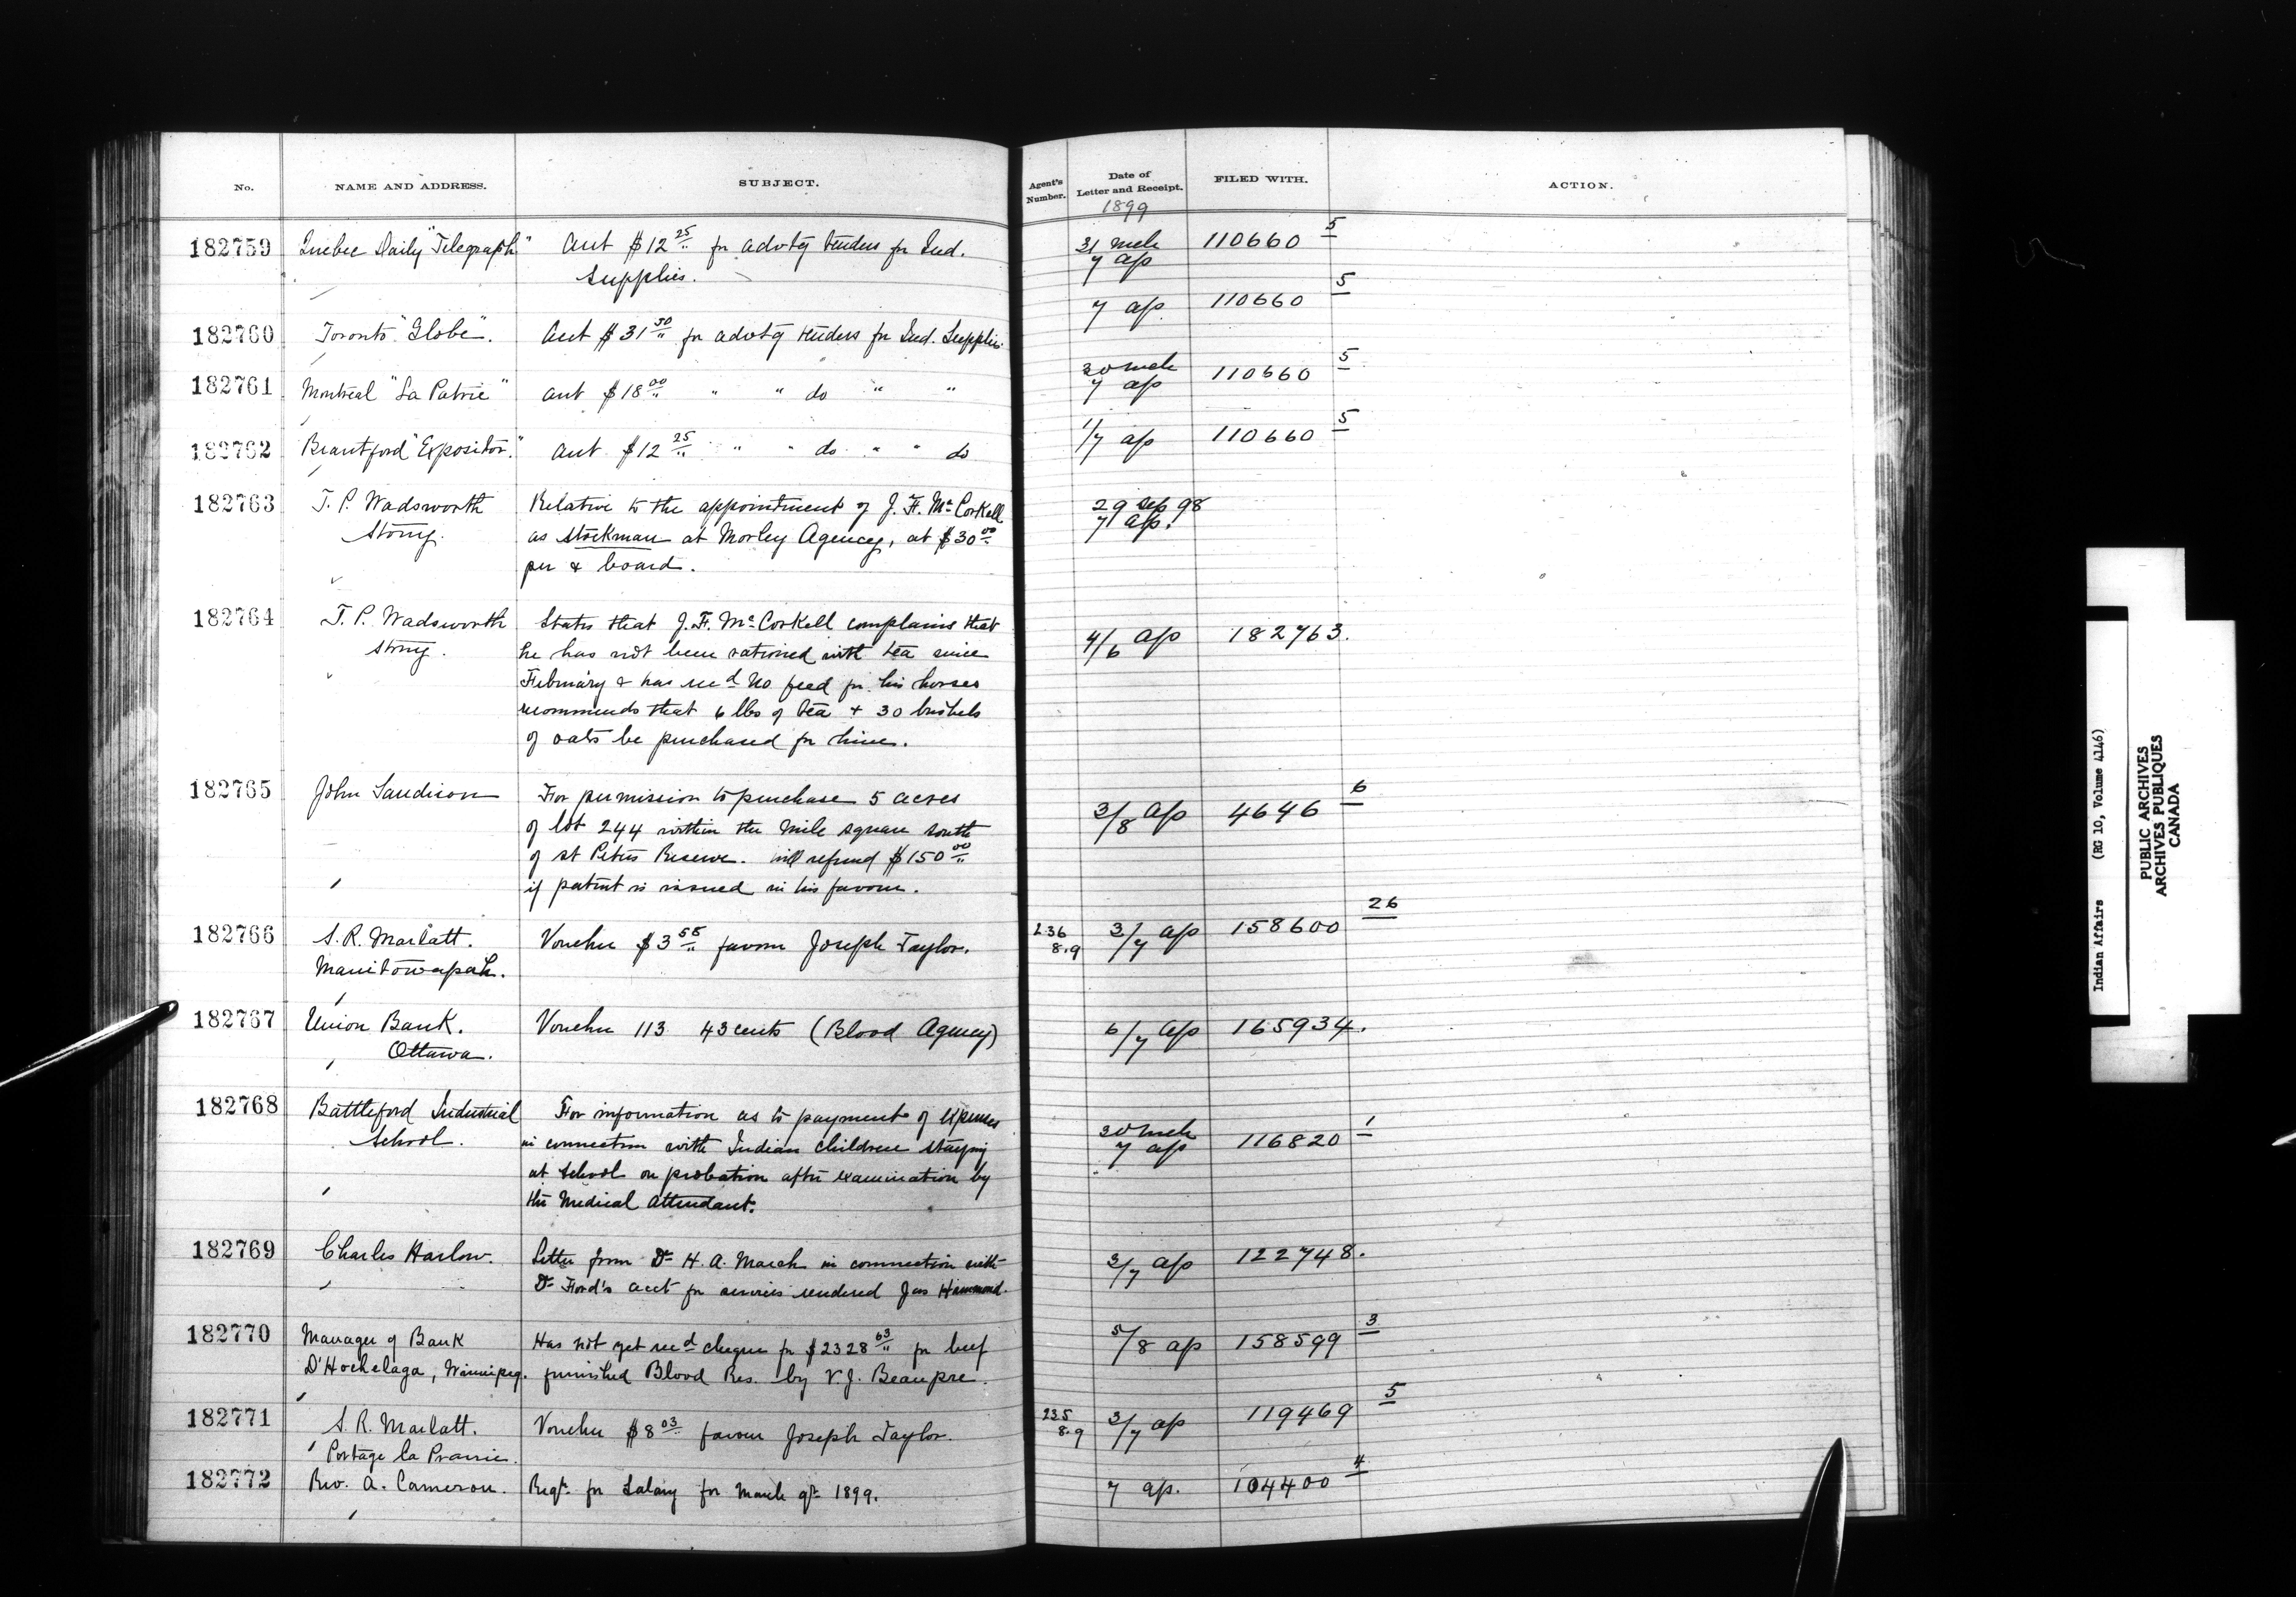 No. NAME AND ADDRESS. SUBJECT. Agent's Number. Date of Letter and Receipt. FILED WITH. ACTION.
1899
182759 Quebec Daily "Telegraph" Acct $12 25 fr advtg tenders fr Ind. 31 Mch 110660 5
Supplies. 7 ap
182760 Toronto "Globe". Acct $31 50 fr advtg tenders fr Ind. Supplies. 7 ap. 110660 5
182761 Montreal "La Patrie" Acct $18 00 " " do " " 30 Mch 110660 5
7 ap
182762 Brantford "Expositor." Acct $12 25 " " do " " do 1/7 ap 110660 5
182763 T. P. Wadsworth Relative to the appointment of J. F. McCorkell 29 Sep 98
Stony. as stockman at Morley Agency, at $30 00 7 ap.
per & board.
182764 T. P. Wadsworth States that J. F. McCorkell complains that 4/6 ap 182763.
Stony. he has not been rationed with tea since
February & has recd no feed fr his horses
recommends that 6 lbs of tea + 30 bushels
of oats be purchased fr him.
182765 John Sandison For permission to purchase 5 acres 3/8 ap 4646 6
of lot 244 within the mile square south
of St Peters Reserve. will refund $150 00
if patent is issued in his favour.
182766 S. R. Marlatt. Voucher $3 58 favour Joseph Taylor. 236 8.9 3/7 ap 158600 26
Manitowapah.
182767 Union Bank. Voucher 113 43 cents (Blood Agency) 6/7 ap 165934.
Ottawa.
182768 Battleford Industrial For information as to payment of expenses 30 Mch 116820 1
School. in connection with Indian children staying 7 ap
at School on probation after examination by
the Medical Attendant.
182769 Charles Harlow. Letter from Dr H. A. March in connection with 3/7 ap 122748.
Dr Ford's acct fr services rendered Jas Hammond.
182770 Manager of Bank Has not yet recd cheque fr $2328 63 fr beef 5/8 ap 158599 3
D'Hochelaga, Winnipeg. furnished Blood Res. by V. J. Beaupre.
182771 S. R. Marlatt. Voucher $8 03 favour Joseph Taylor. 235 8.9 3/7 ap 119469 5
Portage la Prairie.
182772 Rev. A. Cameron. Reqn fr Salary for March qr 1899. 7 ap. 104400 4
Indian Affairs (RG 10, Volume 4146)
PUBLIC ARCHIVES
ARCHIVES PUBLIQUES
CANADA